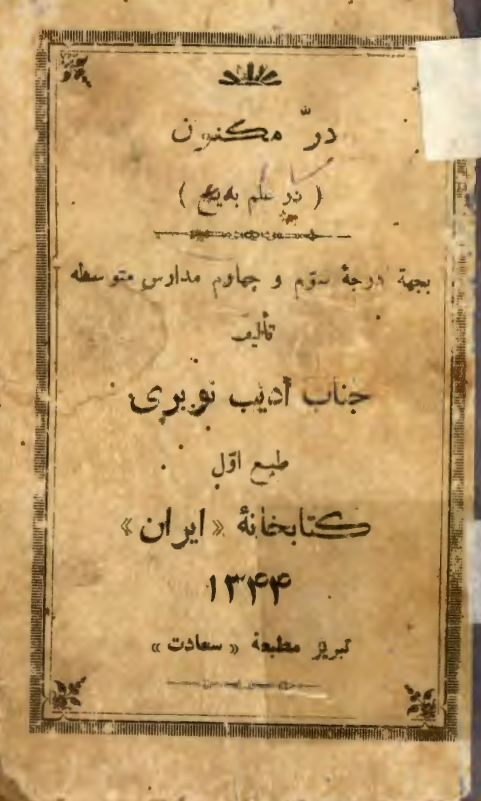 درّ مکنون
( در علم بدیع )
بجهة درجهٔ سوّم و چهارم مدارس متوسطه
تألیف
جناب ادیب نوبری
طبع اوّل
کتابخانهٔ «ایران»
۱۳۴۴
تبریز مطبعهٔ « سعادت »